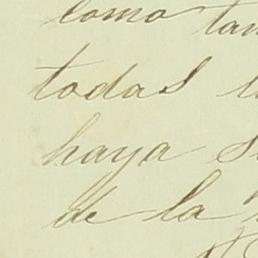 como tan
todas l
haya s
de la